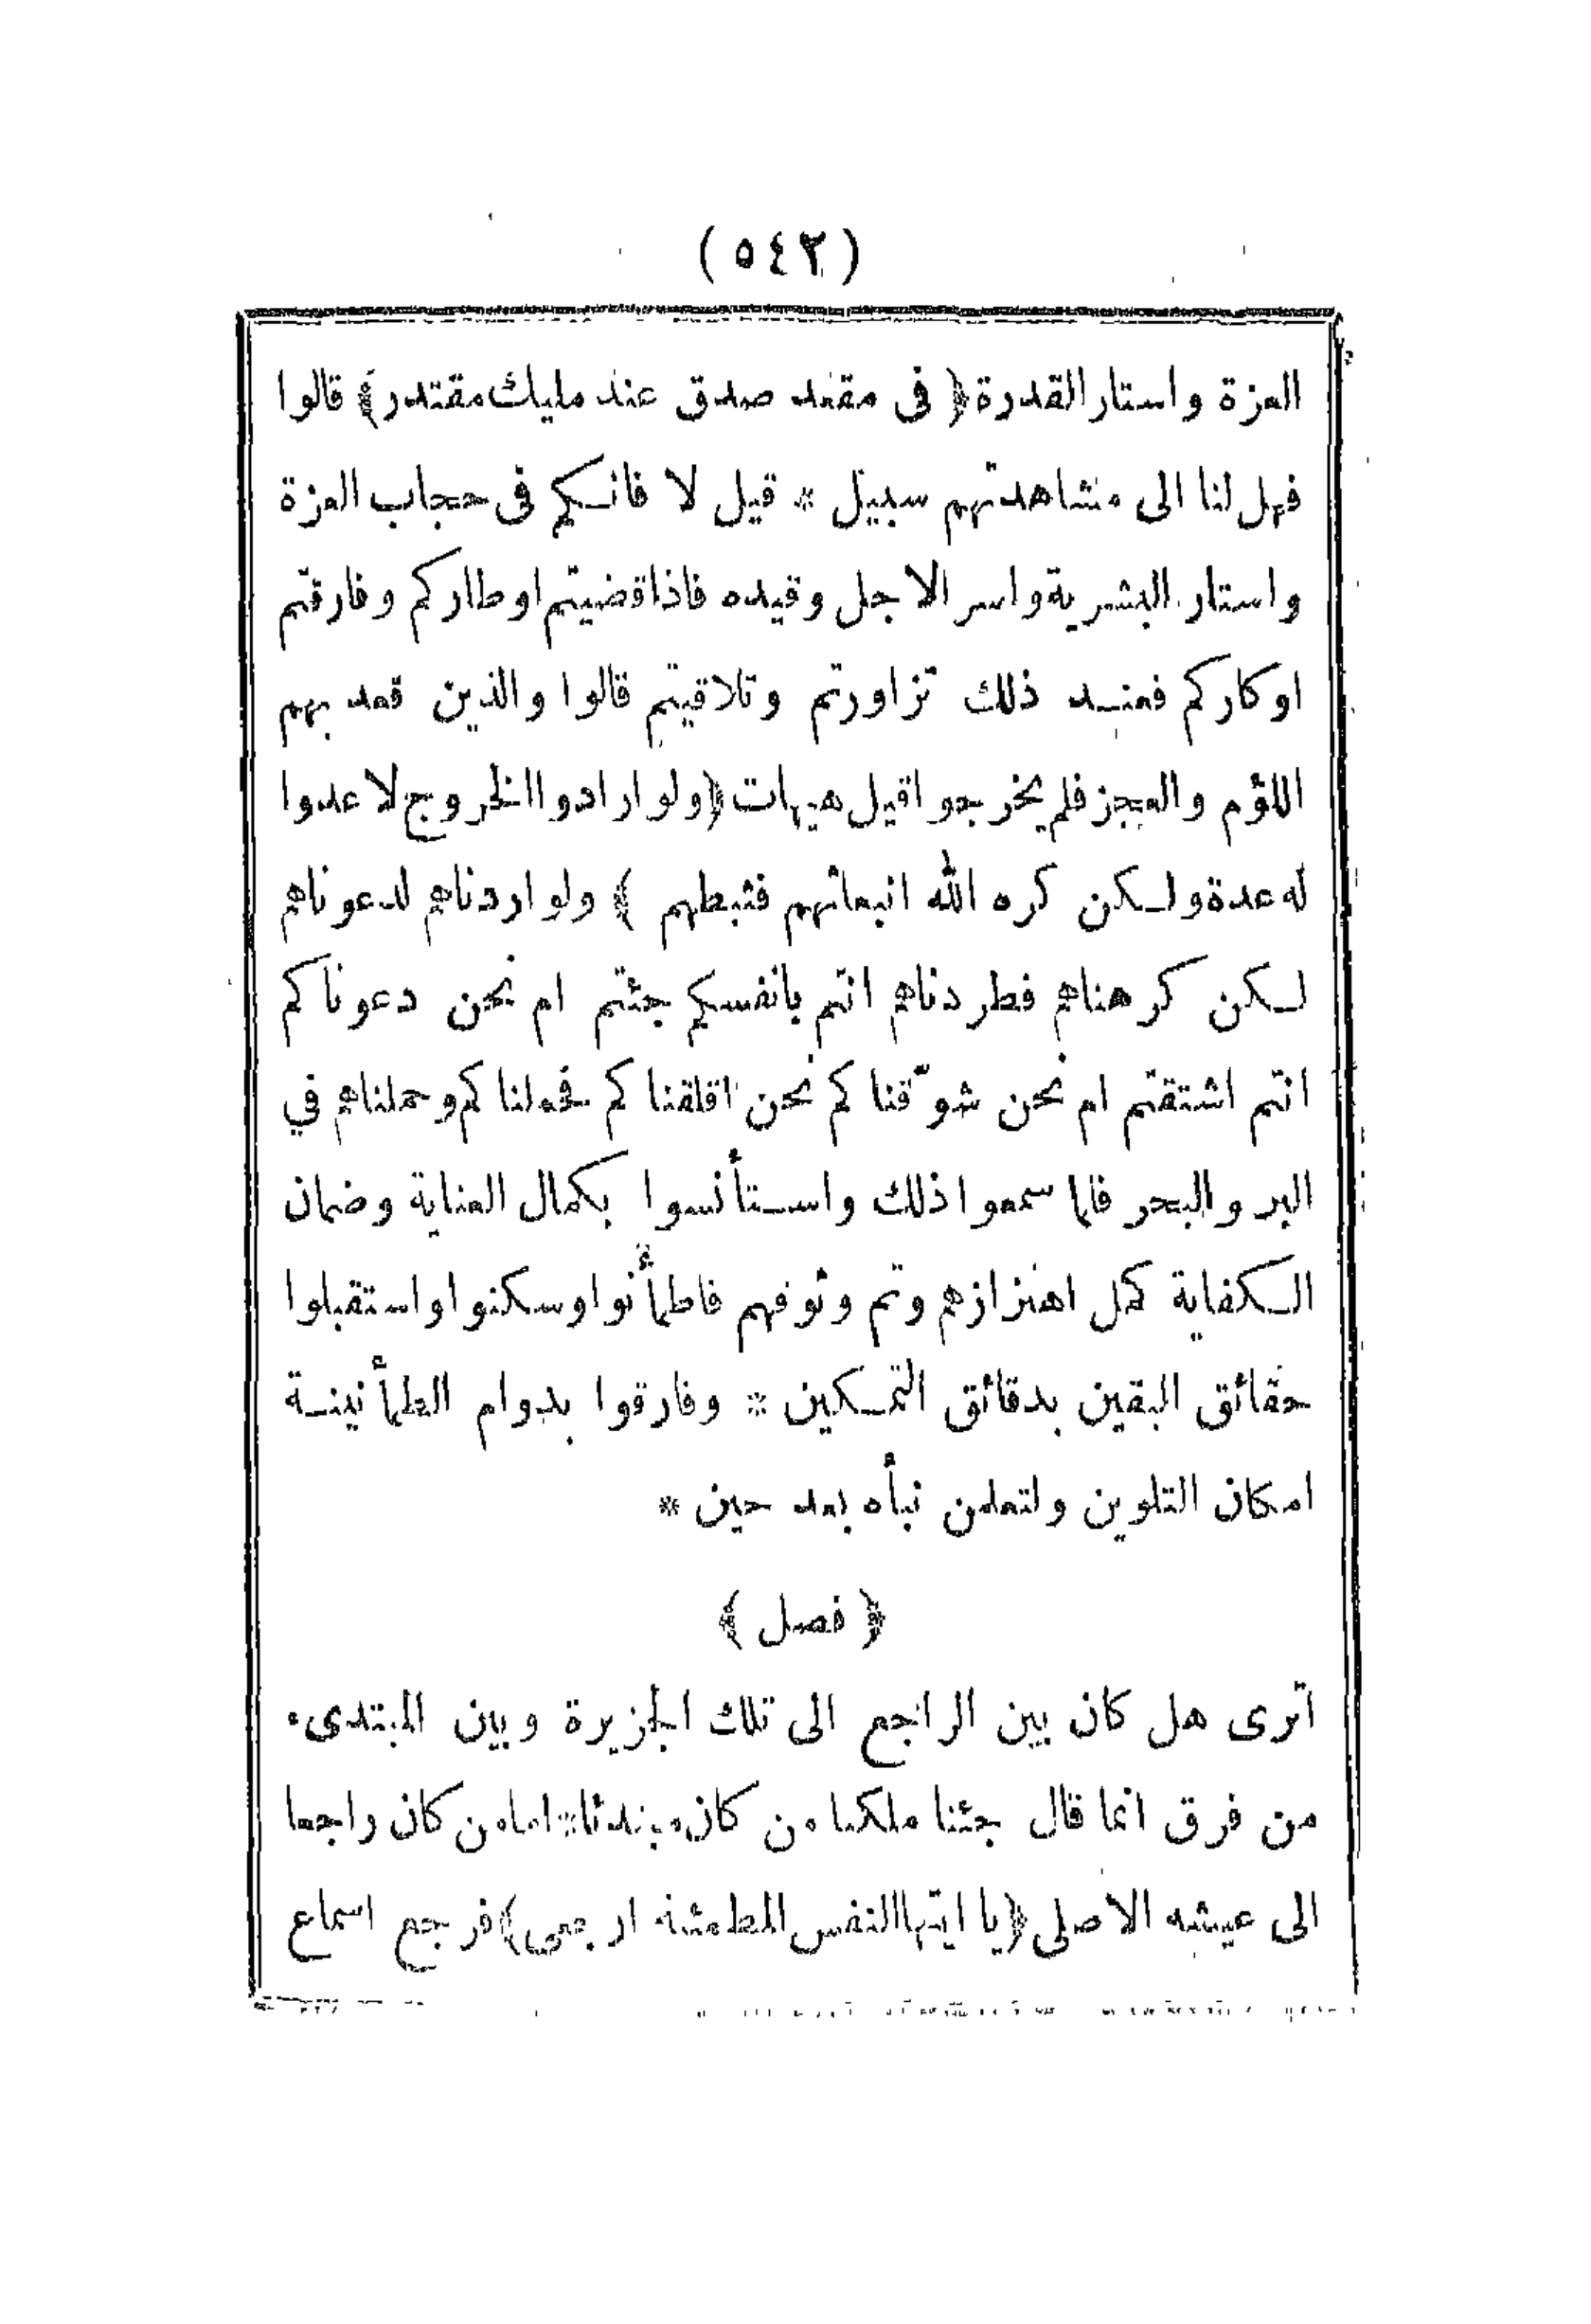 (٥٤٢)
العزة واستار القدرة ﴿ فى مقعد صدق عند مليك مقتدر ﴾ قالوا
فهل لنا الى مشاهدتهم سبيل * قيل لا فانكم فى حجاب العزة
واستار البشرية واسر الاجل وقيده فاذا قضيتم اوطاركم وفارقتم
اوكاركم فعند ذلك تزاورتم وتلاقيتم قالوا والذين قعد بهم
اللؤم والعجز فلم يخرجوا قيل هيهات ﴿ ولو ارادوا الخروج لاعدوا
له عدة ولكن كره الله انبعاثهم فثبطهم ﴾ ولو اردناهم لدعوناهم
لكن كرهناهم فطردناهم انتم بانفسكم جئتم ام نحن دعوناكم
انتم اشتقتم ام نحن شوّقناكم نحن اقلقناكم فحملناكم وحملناهم في
البر والبحر فلما سمعوا ذلك واستأنسوا بكمال العناية وضمان
الكفاية كمل اهتزازهم وتم وثوقهم فاطمأنوا وسكنوا واستقبلوا
حقائق اليقين بدقائق التمكين * وفارقوا بدوام الطمأنينة
امكان التلوين ولتعلمن نبأه بعد حين *
﴿ فصل ﴾
أترى هل كان بين الراجع الى تلك الجزيرة وبين المبتدىء
من فرق انما قال جئنا ملكنا من كان مبتدئا * اما من كان راجعا
الى عيشه الاصلى ﴿ يا ايتها النفس المطمئنة ارجعى ﴾ فرجع اسماع